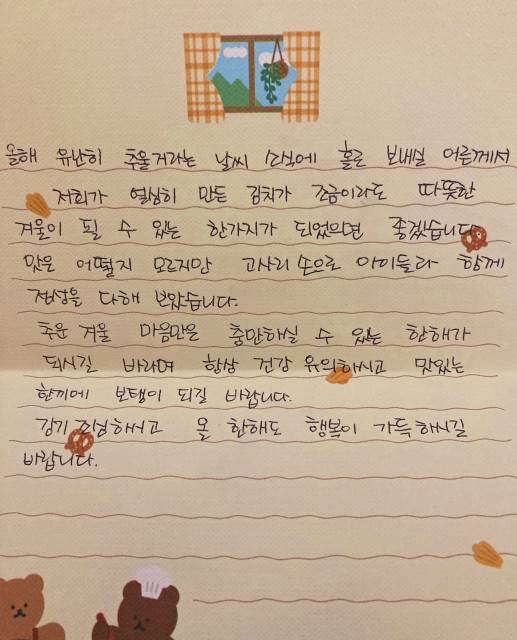 올해 유난히 추울거라는 날씨 소식에 홀로 보내실 어른께서
저희가 열심히 만든 김치가 조금이라도 따뜻한
겨울이 될 수 있는 한가지가 되었으면 좋겠습니다
맛은 어떨지 모르지만 고사리손으로 아이들과 함께
정성을 다해 보았습니다.
추운 겨울 마음만은 충만해질 수 있는 한해가
되시길 바라며 항상 건강 유의하시고 맛있는
한끼에 보탬이 되길 바랍니다.
감기 조심하시고 올 한해도 행복이 가득하시길
바랍니다.